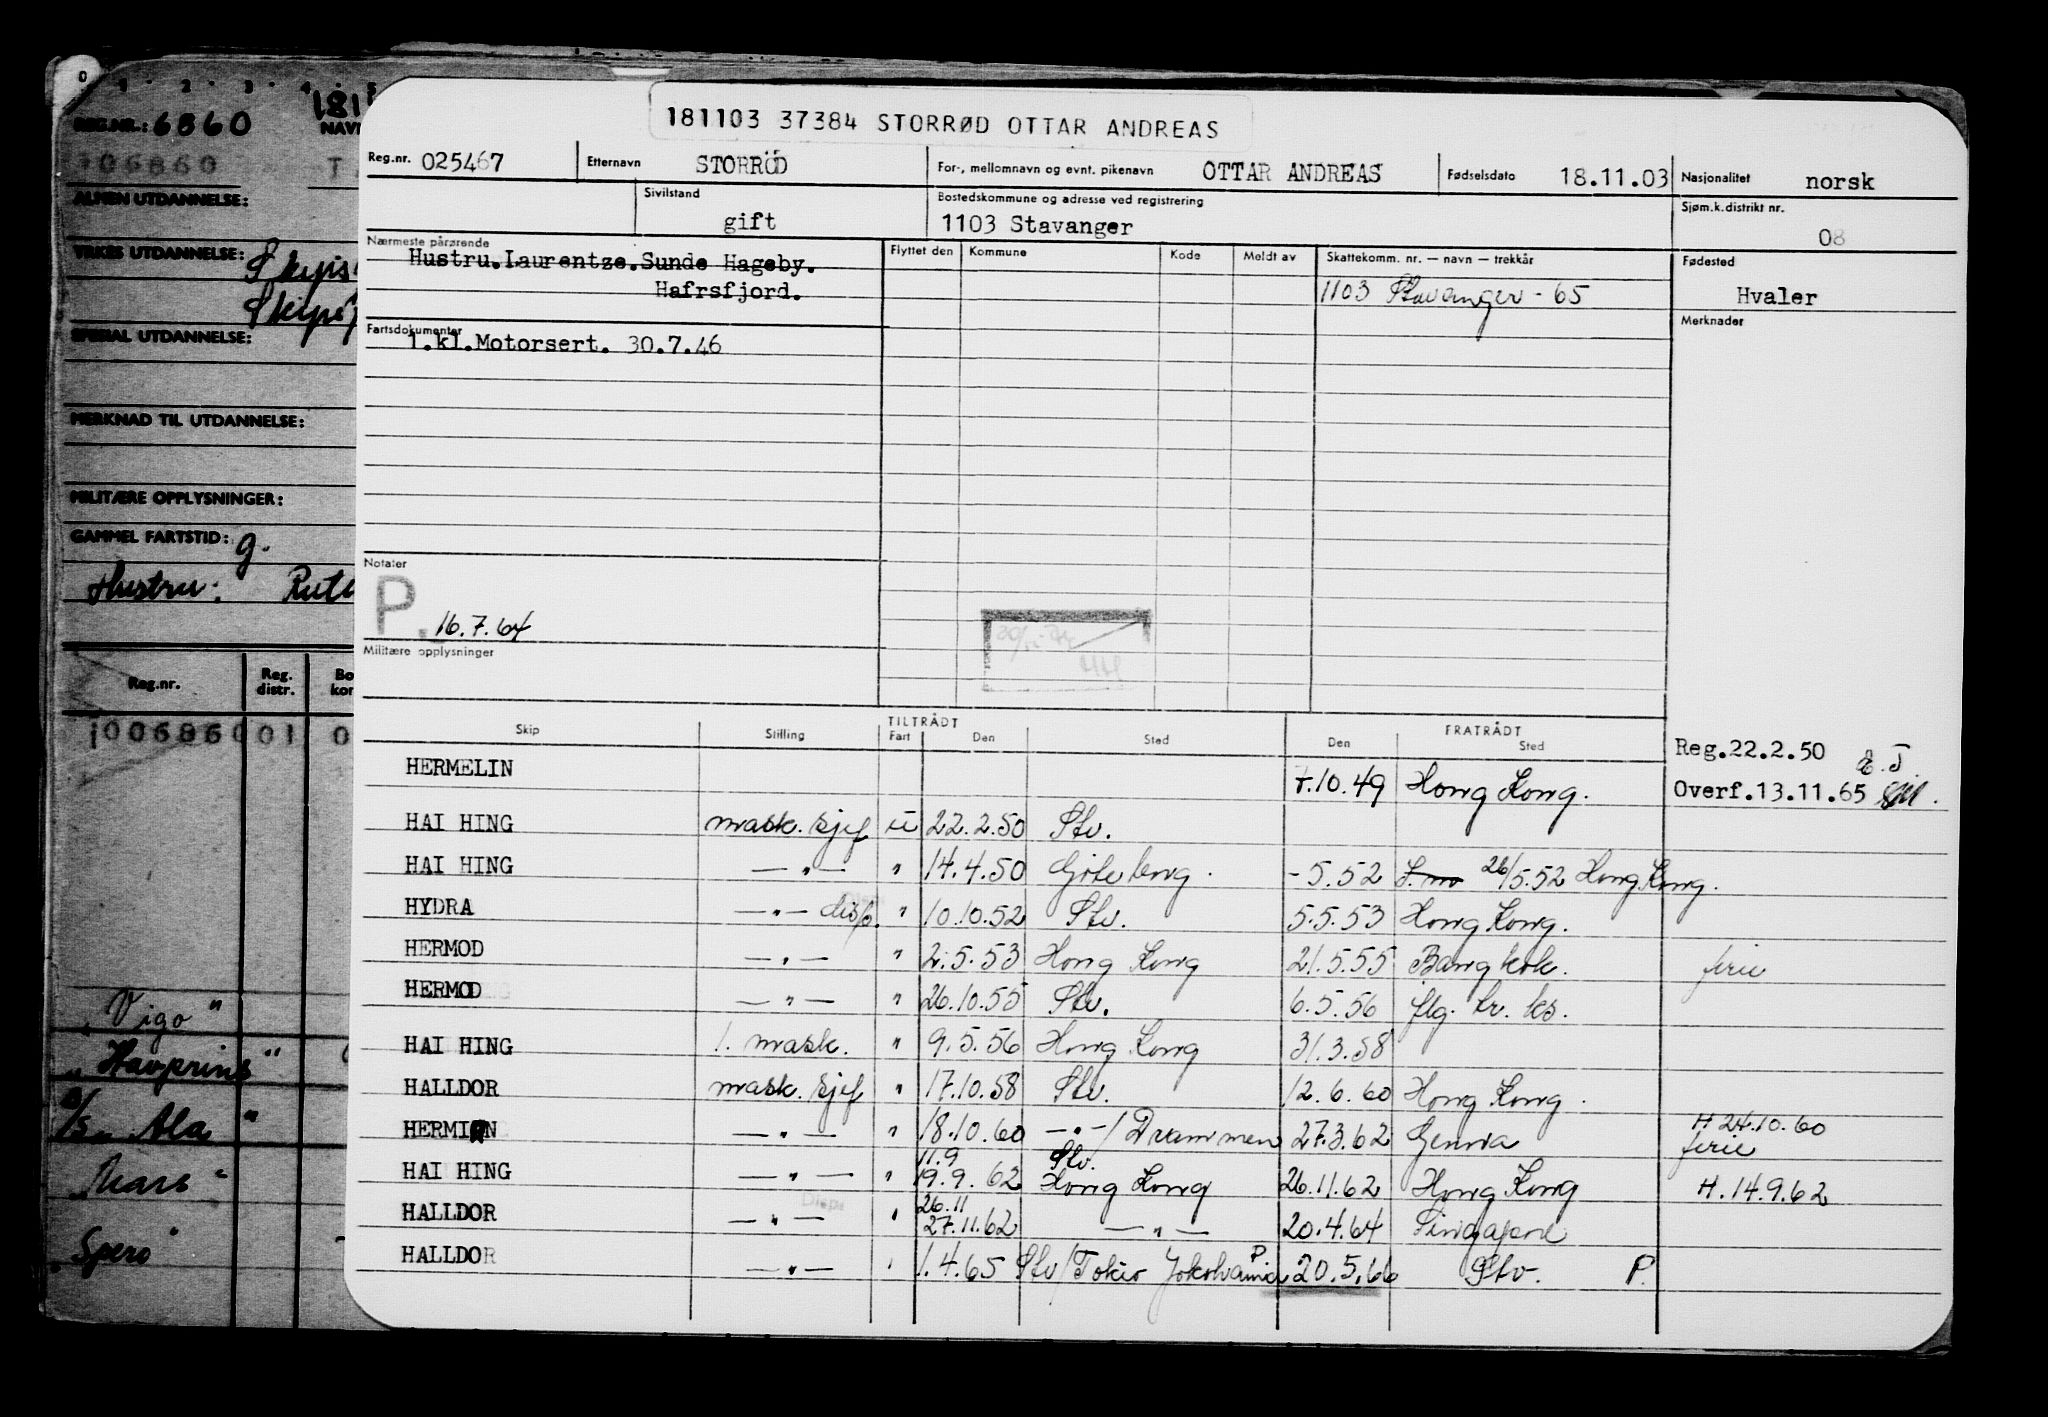 0 1 2 3 4 5
REG.NR.: 6860
NAV
006860 T
ALMEN UTDANNELSE:
YRKES UTDANNELSE: Skips
Skips
SPESIAL UTDANNELSE:
MERKNAD TIL UTDANNELSE:
MILITÆRE OPPLYSNINGER:
GAMMEL FARTSTID: g.
Hustru: Rut
Reg.nr. Reg. distr. Bo kor
1006860 01 0
"Vigo"
"Havprins"
"Ala"
"Mars"
"Spero"
181103 37384 STORRØD OTTAR ANDREAS
Reg.nr. 025467 Etternavn STORRÖD For-, mellomnavn og evnt. pikenavn OTTAR ANDREAS Fødselsdato 18.11.03 Nasjonalitet norsk
Sivilstand gift Bostedskommune og adresse ved registrering 1103 Stavanger Sjøm.k.distrikt nr. 08
Nærmeste pårørende Flyttet den Kommune Kode Meldt av Skattekomm. nr. — navn — trekkår Fødested
Hustru.Laurentze.Sunde Hageby.
Hafrsfjord. 1103 Stavanger - 65 Hvaler
Fartsdokumenter Merknader
1.kl.Motorsert. 30.7.46
Notater
P. 16.7.64
Militære opplysninger
TILTRÅDT FRATRÅDT
Skip Stilling Fart Den Sted Den Sted
Reg.22.2.50
HERMELIN 7.10.49 Hong Kong.
Overf.13.11.65
HAI HING mask. sjef u 22.2.50 Stv.
HAI HING — " — " 14.4.50 Göteborg. -5.52 26/5.52 Hong Kong.
HYDRA — " — disp. " 10.10.52 Stv. 5.5.53 Hong Kong.
HERMOD — " — " 2.5.53 Hong Kong 21.5.55 Bangkok. ferie
HERMOD — " — " 26.10.55 Stv. 6.5.56 flg. br. ks.
HAI HING 1. mask. " 9.5.56 Hong Kong 31.3.58
HALLDOR mask. sjef " 17.10.58 Stv. 12.6.60 Hong Kong.
HERMION — " — " 18.10.60 — " — / Drammen 27.3.62 Genua H 24.10.60 ferie
HAI HING — " — " 11.9 19.9.62 Stv. Hong Kong 26.11.62 Hong Kong H. 14.9.62
HALLDOR — " — " 26.11 27.11.62 — " — 20.4.64 Singapore
HALLDOR — " — " 1.4.65 Stv/Tokio Yokohama P 20.5.66 Stv. P.